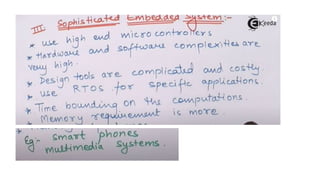 III. Sophisticated Embedded System:-
Ekeeda
* use high end microcontrollers
* Hardware and software complexities are
very high.
* Design tools are complicated and costly.
* use RTOS for specific applications.
* Time bounding on the computations.
* Memory requirement is more.
Eg:- smart phones
multimedia systems.